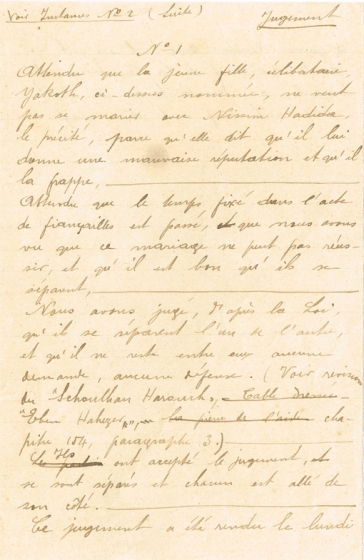 Voir Instance No 2 (Suite) Jugement
No 1
Attendu que la jeune fille, célibataire,
Yakoth, ci-dessus nommée, ne veut
pas se marier avec Nissim Hadida,
le précité, parce qu'elle dit qu'il lui
donne une mauvaise réputation et qu'il
la frappe,
Attendu que le temps fixé dans l'acte
de fiançailles est passé, et que nous avons
vu que ce mariage ne peut pas réus-
sir, et qu'il est bon qu'ils se
séparent,
Nous avons jugé, d'après la Loi,
qu'il se séparent l'un de l'autre,
et qu'il ne reste entre eux aucune
demande, aucune défense. (Voir
du "Schoulhan Harouch",
"Eben Hahezer", cha-
pitre 154, paragraphe 3.)
Ils ont accepté le jugement, et
se sont séparés et chacun est allé de
son côté.
Ce jugement a été rendu le lundi